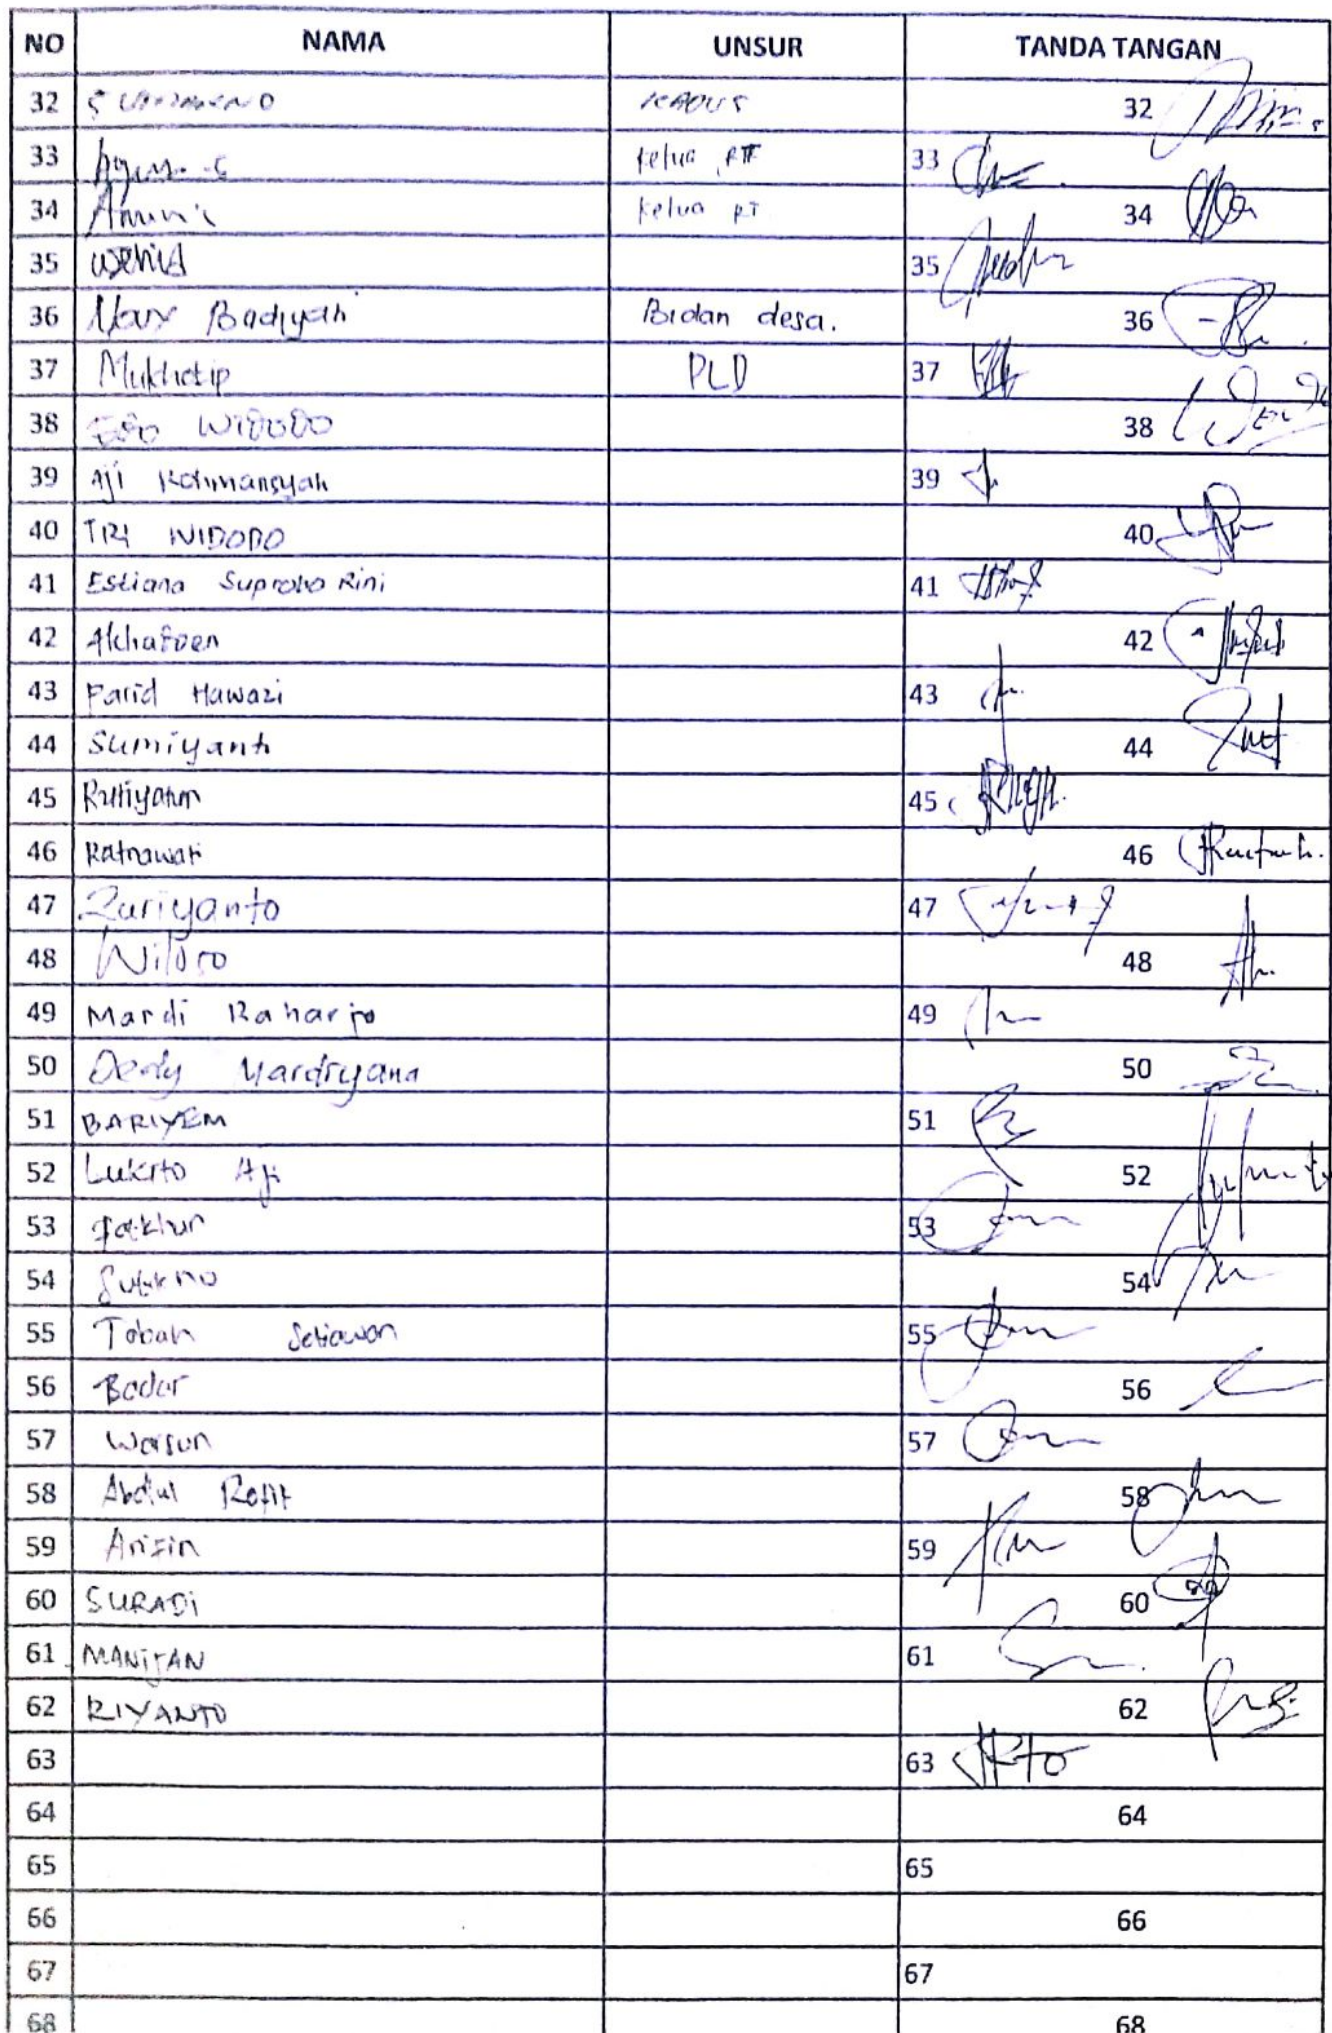 NO NAMA UNSUR TANDA TANGAN
32 KADUS 32
33 Agus S Ketua RT 33
34 Amini Ketua RT 34
35 35
36 Nour Badiyah Bidan desa. 36
37 Mukhotip PLD 37
38 EKO WIDODO 38
39 Aji Rohmansyah 39
40 TRI WIDODO 40
41 Estiana Suproho Rini 41
42 Akhafoen 42
43 Farid Hawazi 43
44 Sumiyanti 44
45 Rutiyatun 45
46 Ratnawati 46
47 Zuriyanto 47
48 48
49 Mardi Raharjo 49
50 Dedy Mardiyana 50
51 BARIYEM 51
52 Lukito Aji 52
53 Fatkhur 53
54 54
55 Tobah Setiawan 55
56 Badar 56
57 Warsun 57
58 Abdul 58
59 Arifin 59
60 SURADi 60
61 MANIJAN 61
62 RIYANTO 62
63 63
64 64
65 65
66 66
67 67
68 68